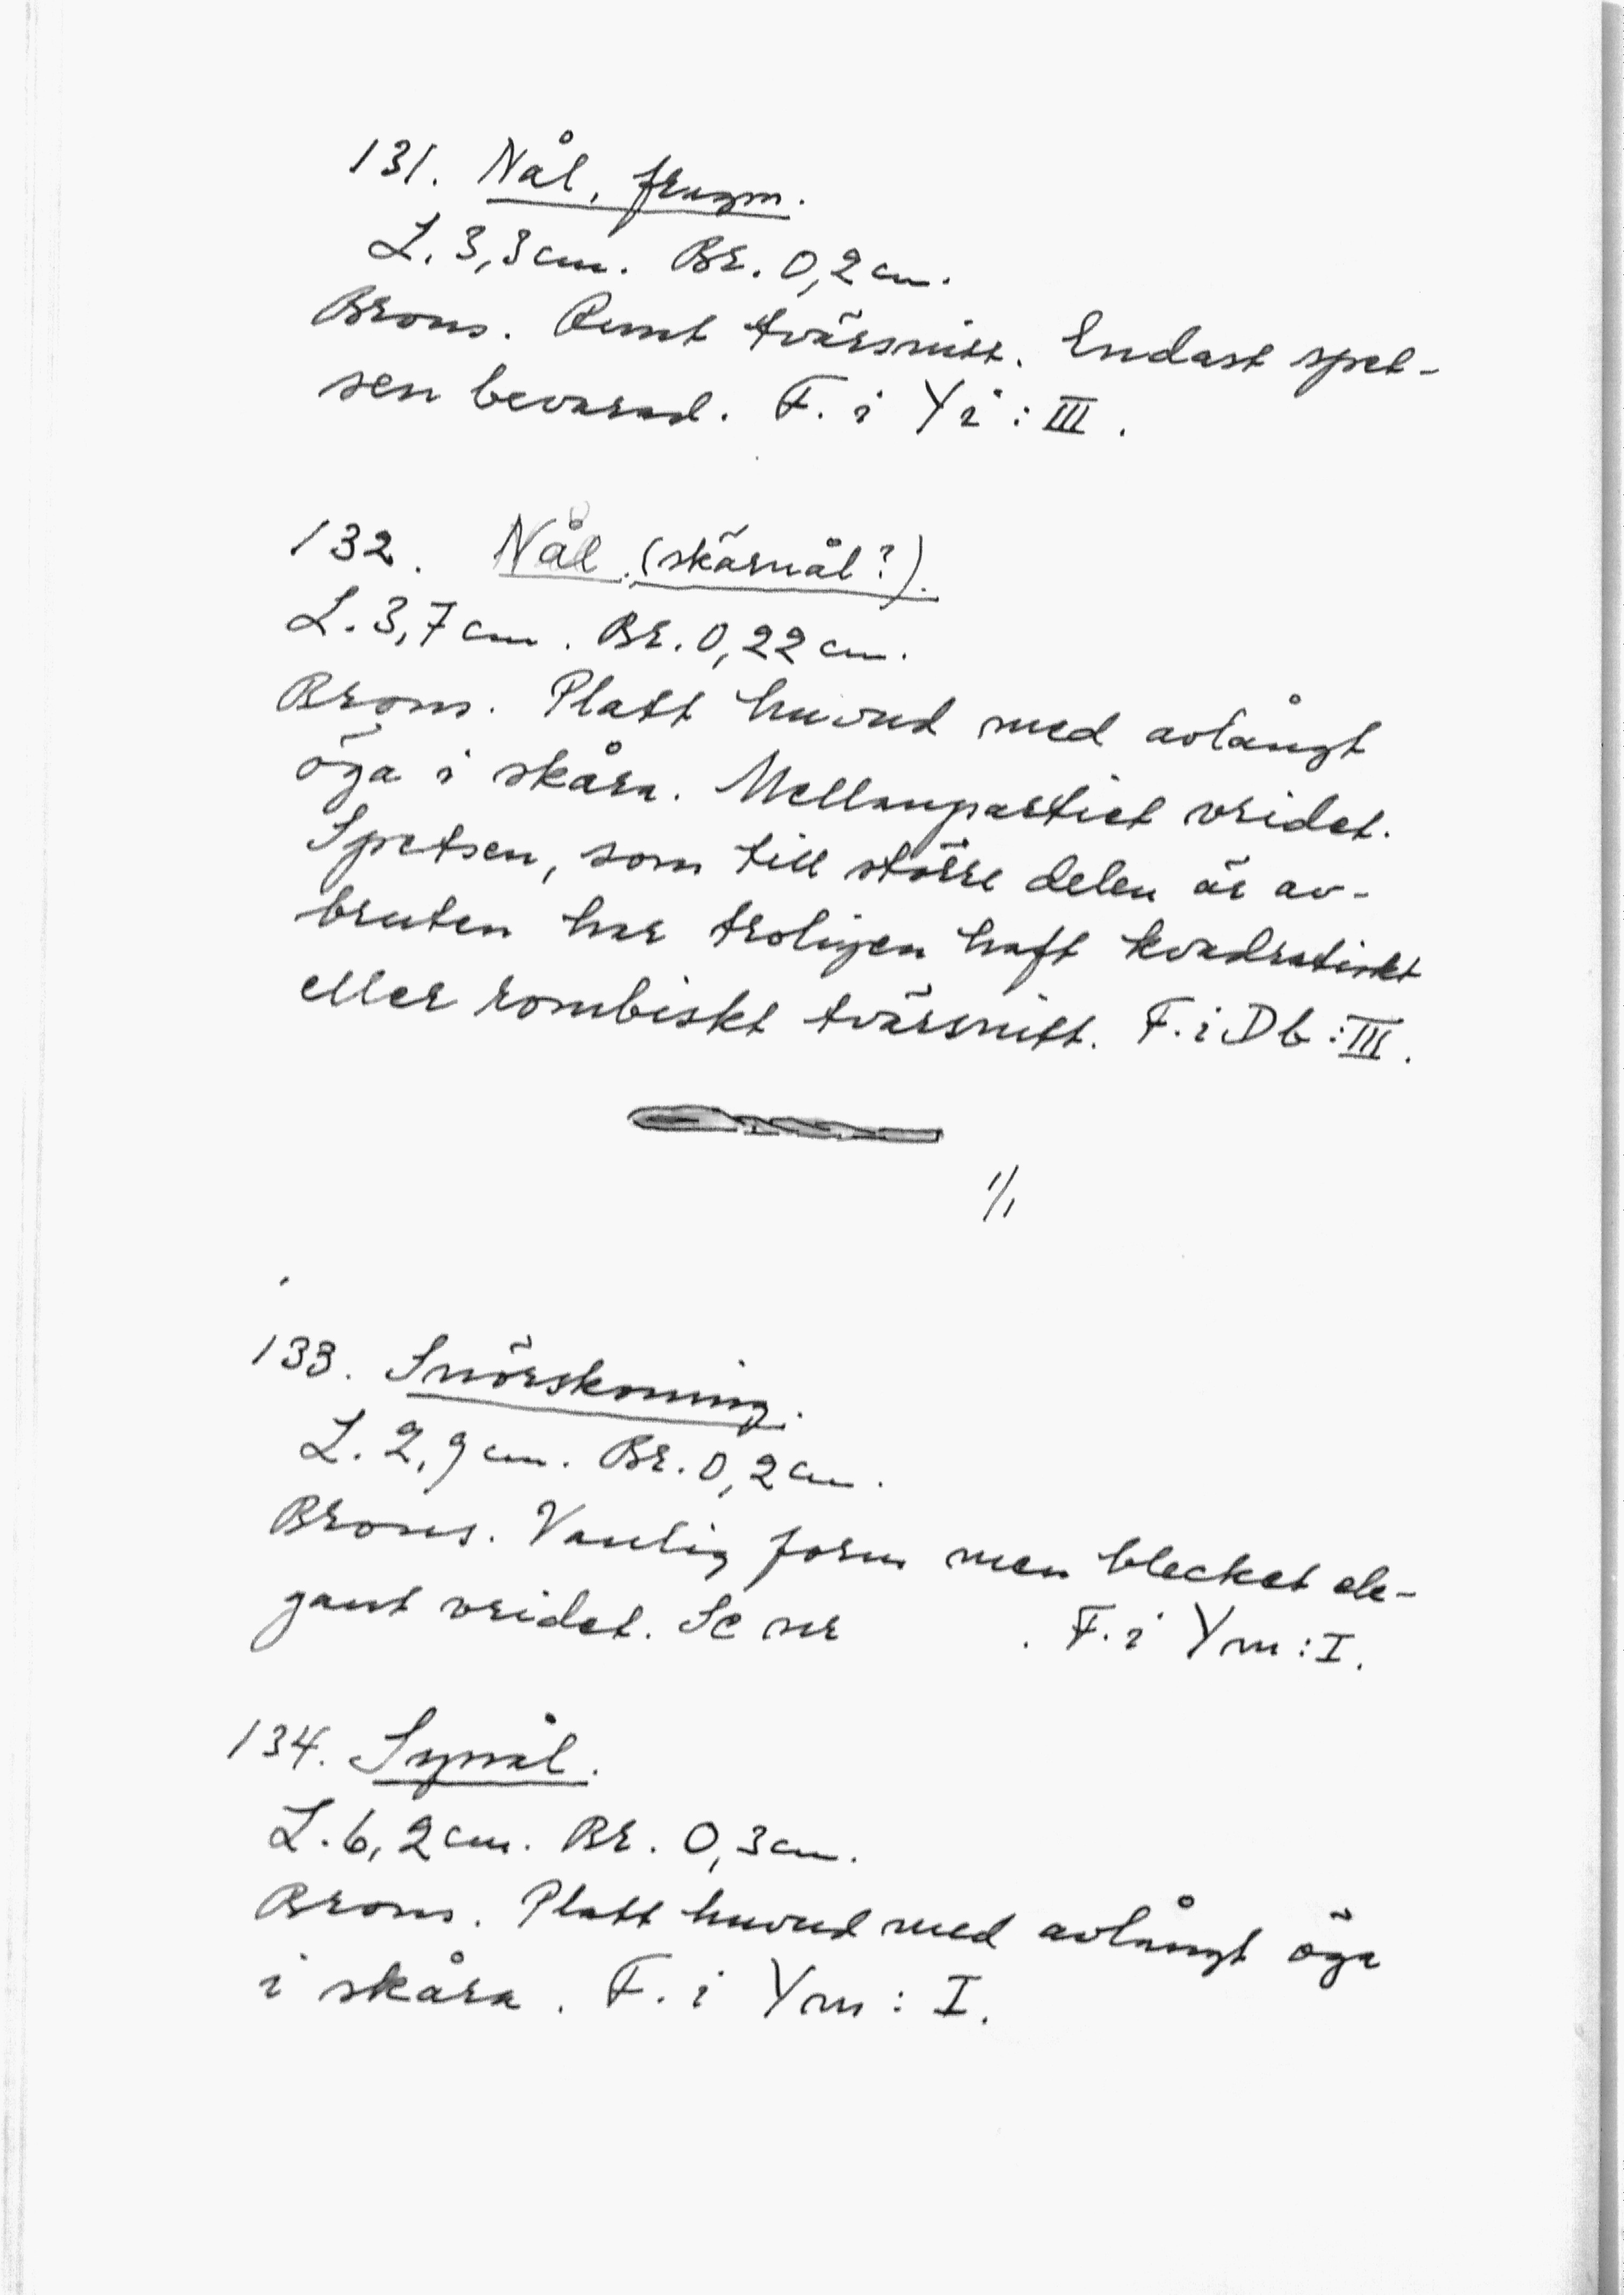 131. Nål, fragm.
L. 3,3 cm. Br. 0,2 cm.
Brons. Runt tvärsnitt. Endast spet-
sen bevarad. F. i Yi : III.
132. Nål (skärnål?).
L. 3,7 cm. Br. 0,22 cm.
Brons. Platt huvud med avlångt
öga i skåra. Mellanpartiet vridet.
Spetsen, som till större delen är av-
bruten har troligen haft kvadratiskt
eller rombiskt tvärsnitt. F. i Db : III.
1/1
133. Snörskoning.
L. 2,9 cm. Br. 0,2 cm.
Brons. Vanlig form men blecket ele-
gant vridet. Se nr . F. i Ym : I.
134. Synål.
L. 6,2 cm. Br. 0,3 cm.
Brons. Platt huvud med avlångt öga
i skåra. F. i Ym : I.